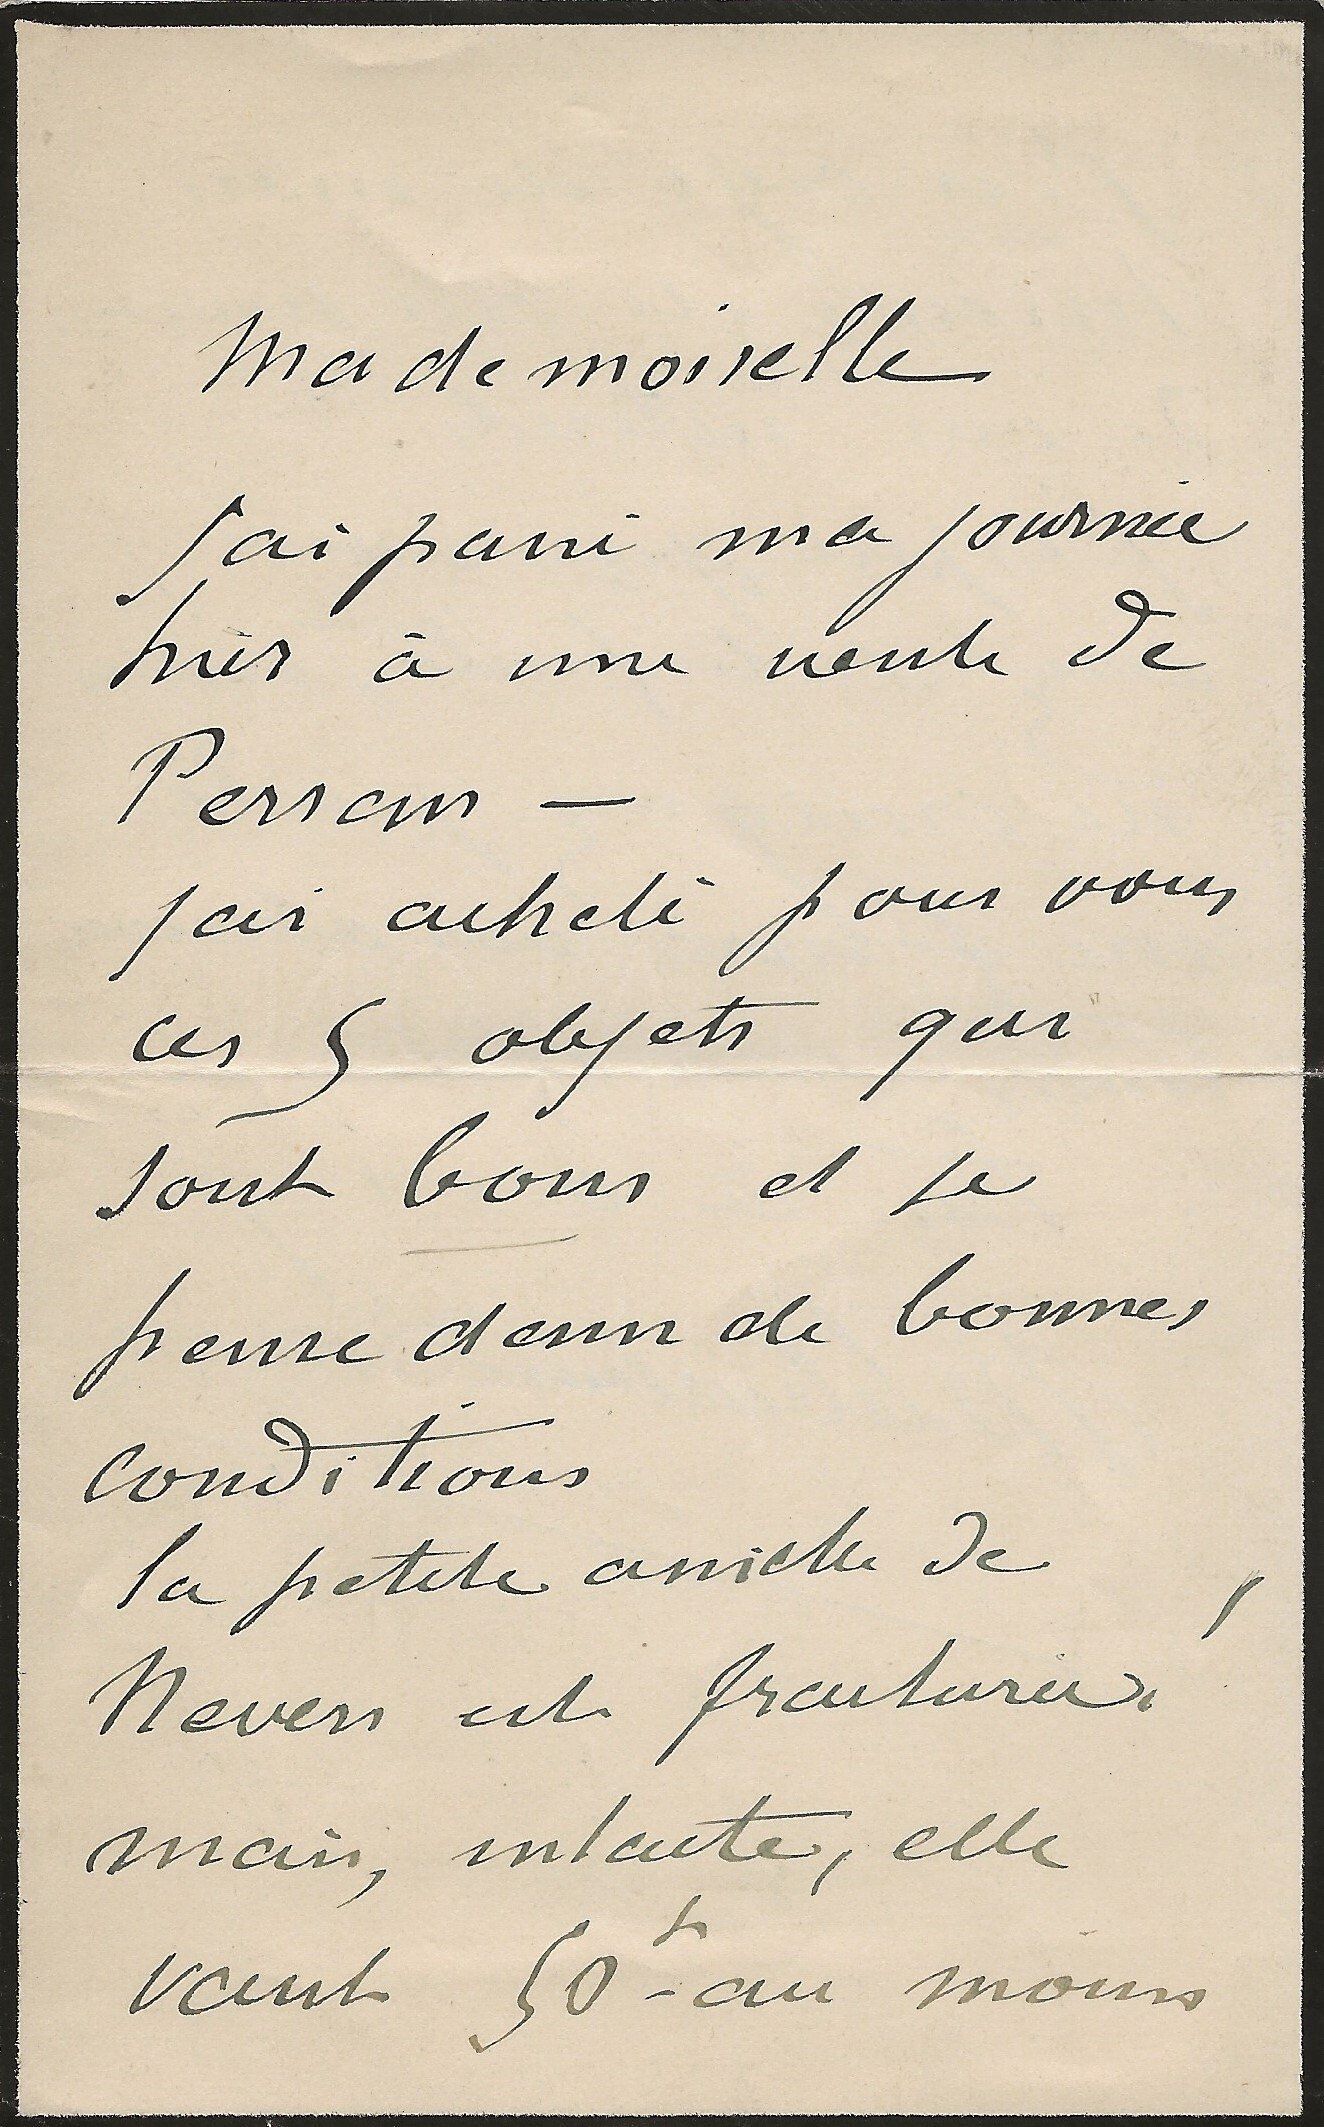 Mademoiselle
J'ai passé ma journée
hier à une vente de
Persan —
j'ai acheté pour vous
ces 5 objets qui
sont bons et je
pense dans de bonnes
conditions
la petite assiette de
Nevers est fracturée,
mais, intacte, elle
vaut 50f au moins